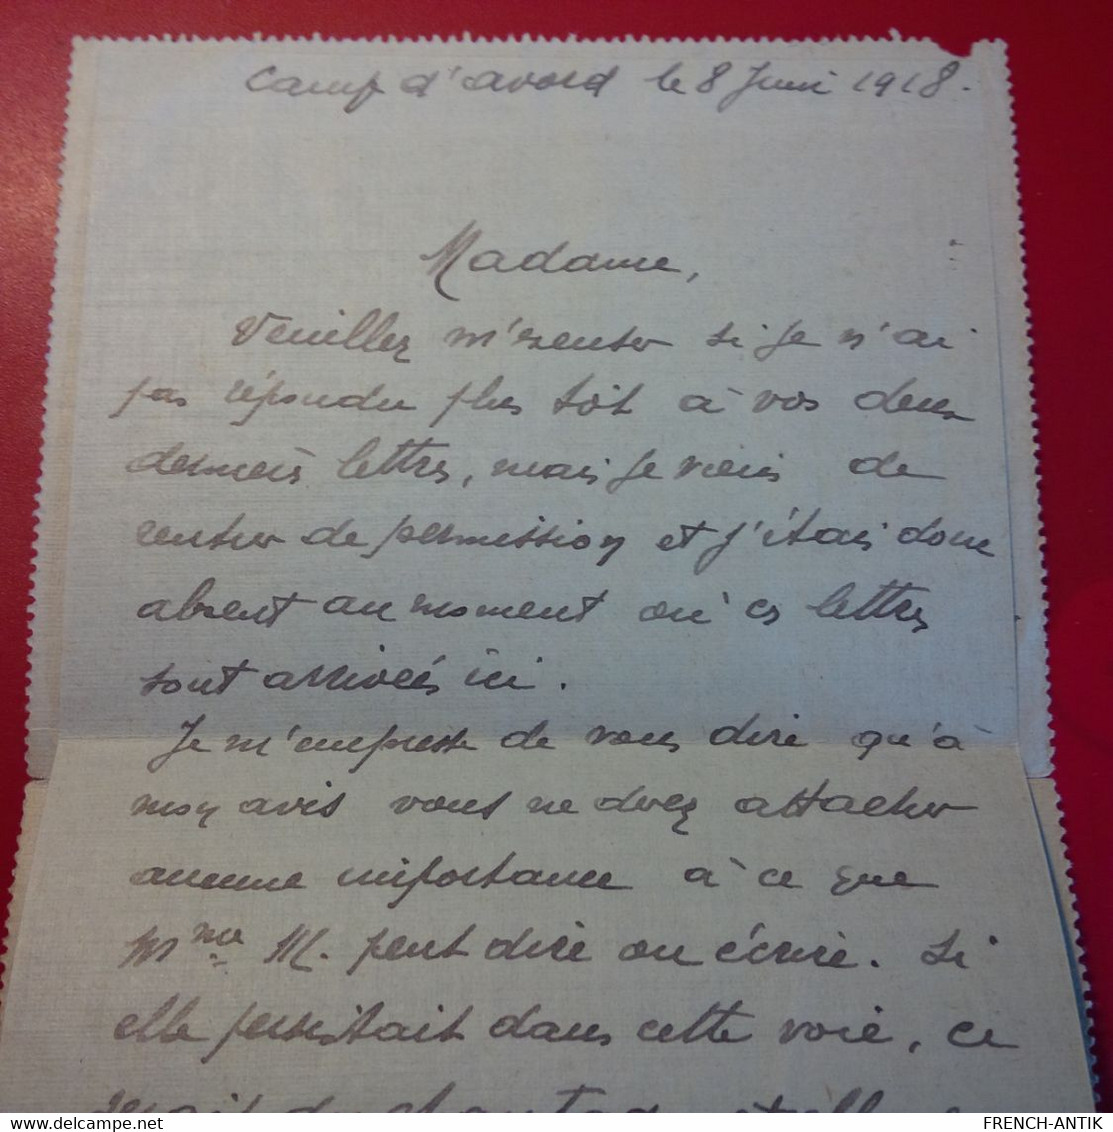 Camp d'avord le 8 Juin 1918.
Madame,
Veuillez m'excuser si je n'ai
pas répondu plus tôt à vos deux
dernières lettres, mais je viens de
rentrer de permission et j'étais donc
absent au moment où ces lettres
sont arrivées ici.
Je m'empresse de vous dire qu'à
mon avis vous ne devez attacher
aucune importance à ce que
Mme M. peut dire ou écrire. Si
elle persistait dans cette voie, ce
serait du chantage et elle
FRENCH-ANTIK